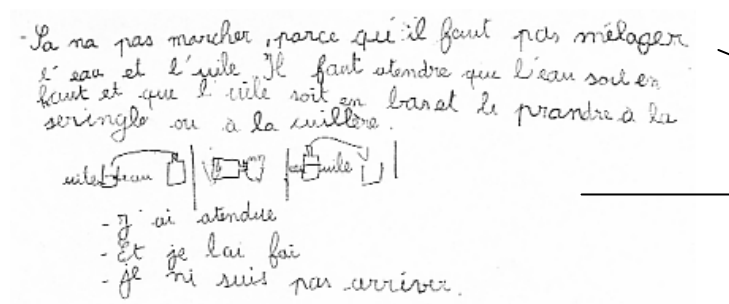 - Sa na pas marcher, parce qu'il faut pas mélager
l'eau et l'uile. Il faut atendre que l'eau soit en
haut et que l'uile soit en bas et le prandre à la
seringle ou à la cuillère.
uile eau eau uile
- J'ai atendue
- Et je lai fai
- je ni suis pas arriver.